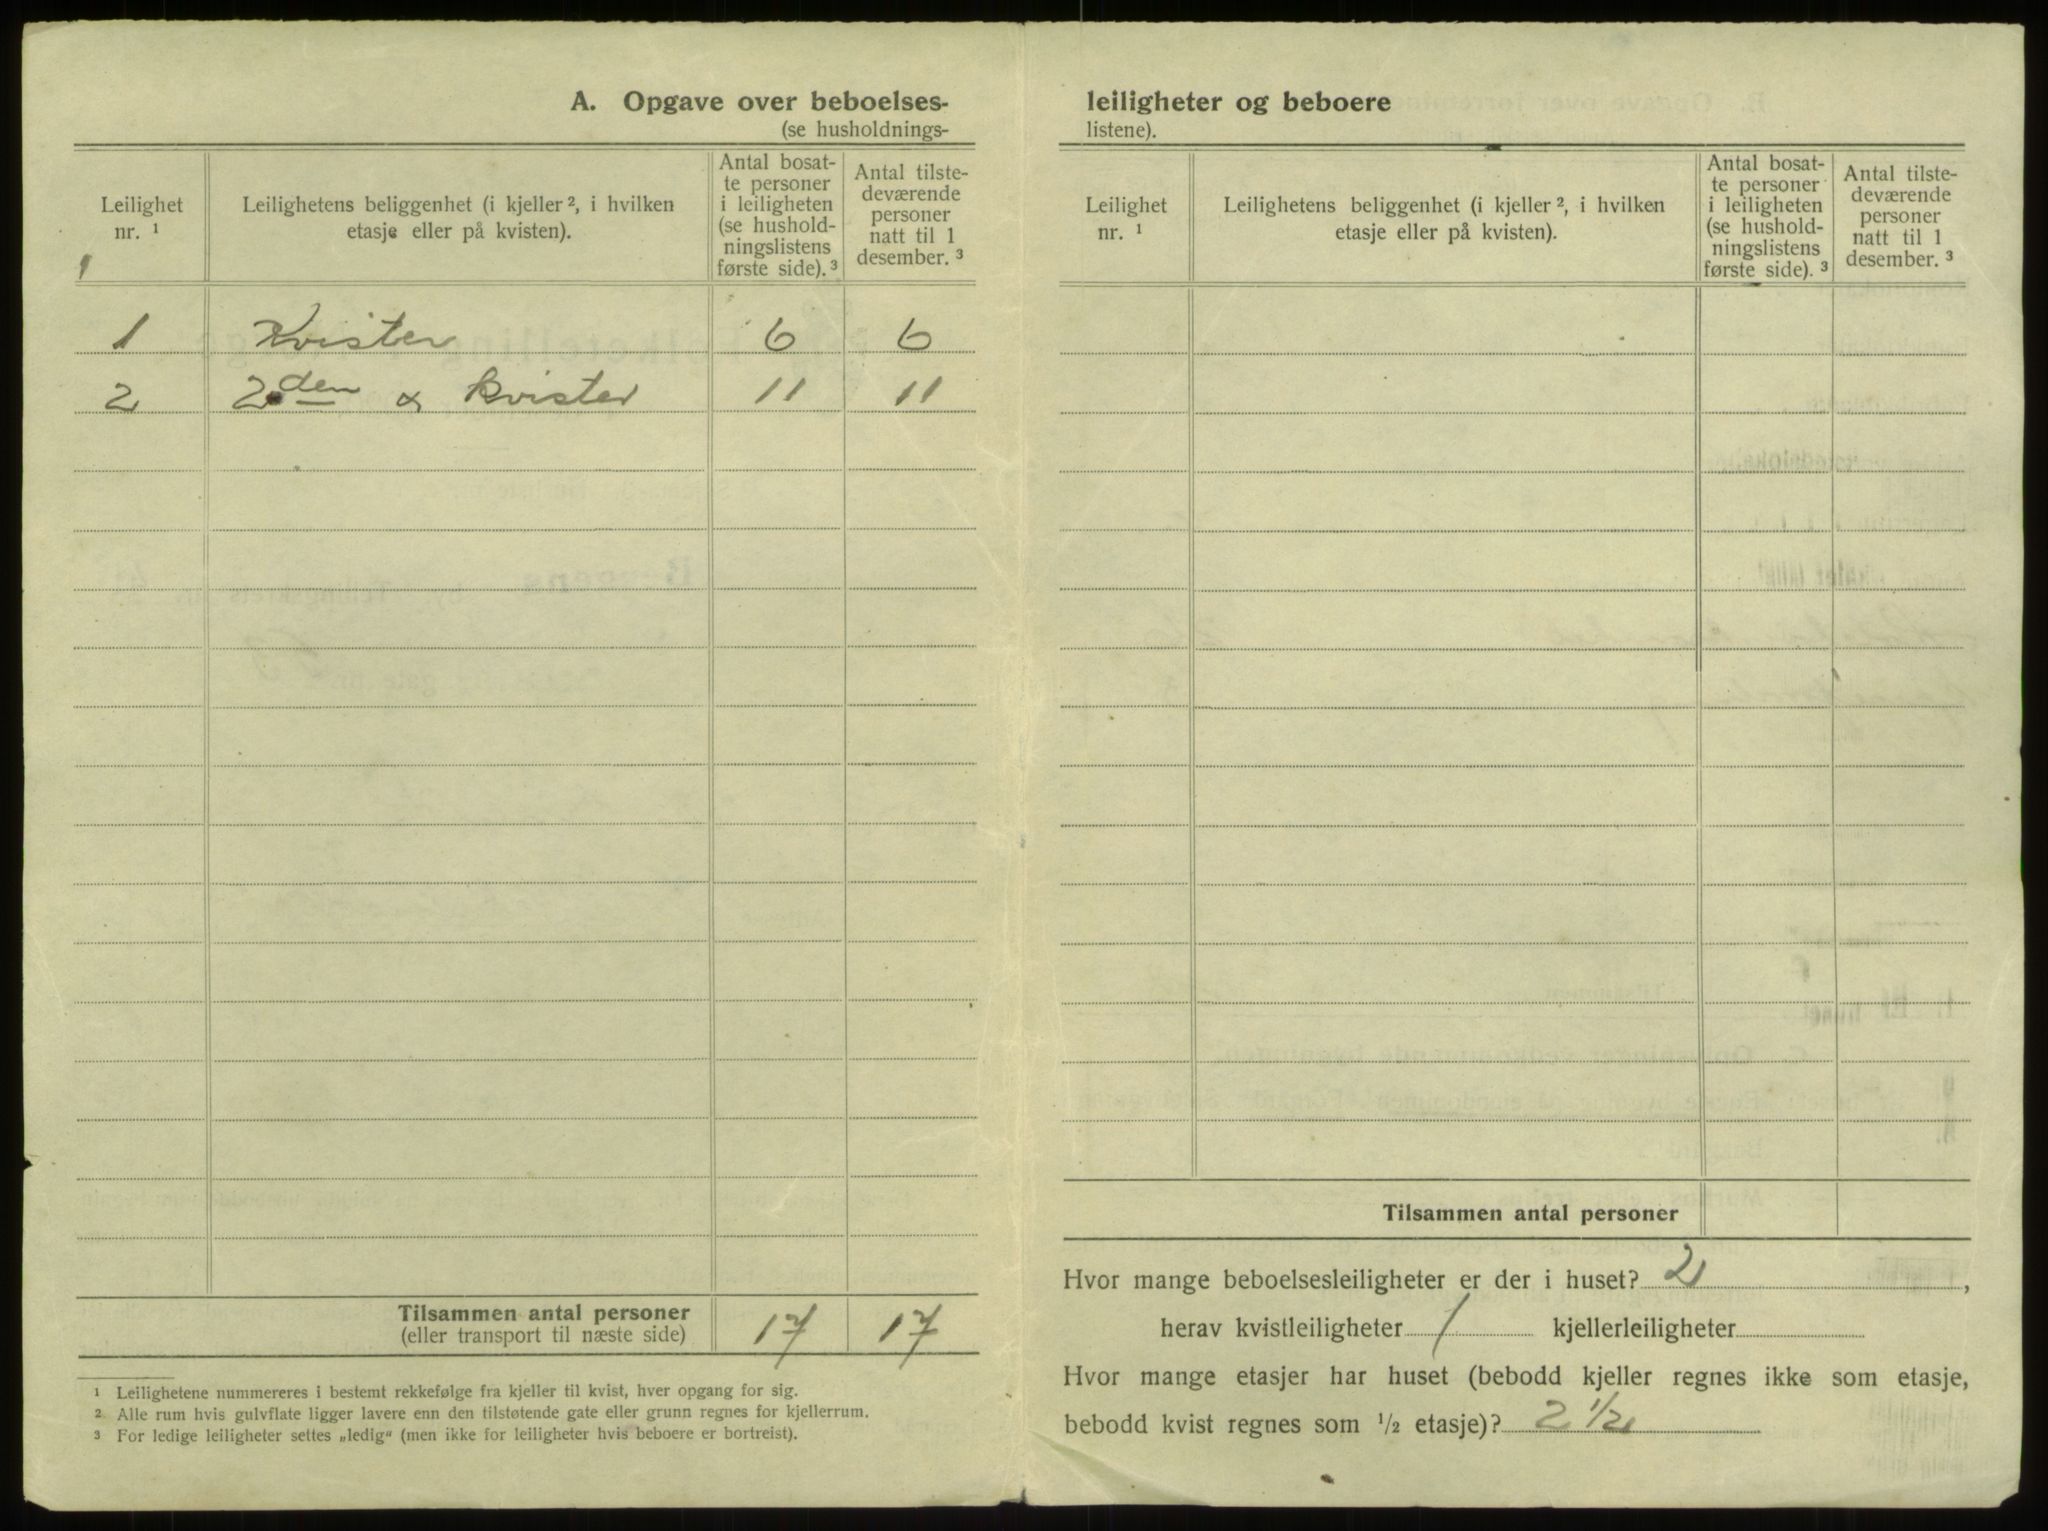 A. Opgave over beboelses-
(se husholdnings-
Leilighet nr. 1
Leilighetens beliggenhet (i kjeller 2, i hvilken etasje eller på kvisten).
Antal bosatte personer i leiligheten (se husholdningslistens første side). 3
Antal tilstedeværende personer natt til 1 desember. 3
1
1 Kvisten 6 6
2 2den & kvisten 11 11
Tilsammen antal personer
(eller transport til næste side) 17 17
1 Leilighetene nummereres i bestemt rekkefølge fra kjeller til kvist, hver opgang for sig.
2 Alle rum hvis gulvflate ligger lavere enn den tilstøtende gate eller grunn regnes for kjellerrum.
3 For ledige leiligheter settes „ledig" (men ikke for leiligheter hvis beboere er bortreist).
leiligheter og beboere
listene).
Leilighet nr. 1
Leilighetens beliggenhet (i kjeller 2, i hvilken etasje eller på kvisten).
Antal bosatte personer i leiligheten (se husholdningslistens første side). 3
Antal tilstedeværende personer natt til 1 desember. 3
Tilsammen antal personer
Hvor mange beboelsesleiligheter er der i huset? 2,
herav kvistleiligheter 1 kjellerleiligheter
Hvor mange etasjer har huset (bebodd kjeller regnes ikke som etasje,
bebodd kvist regnes som 1/2 etasje)? 2 1/2